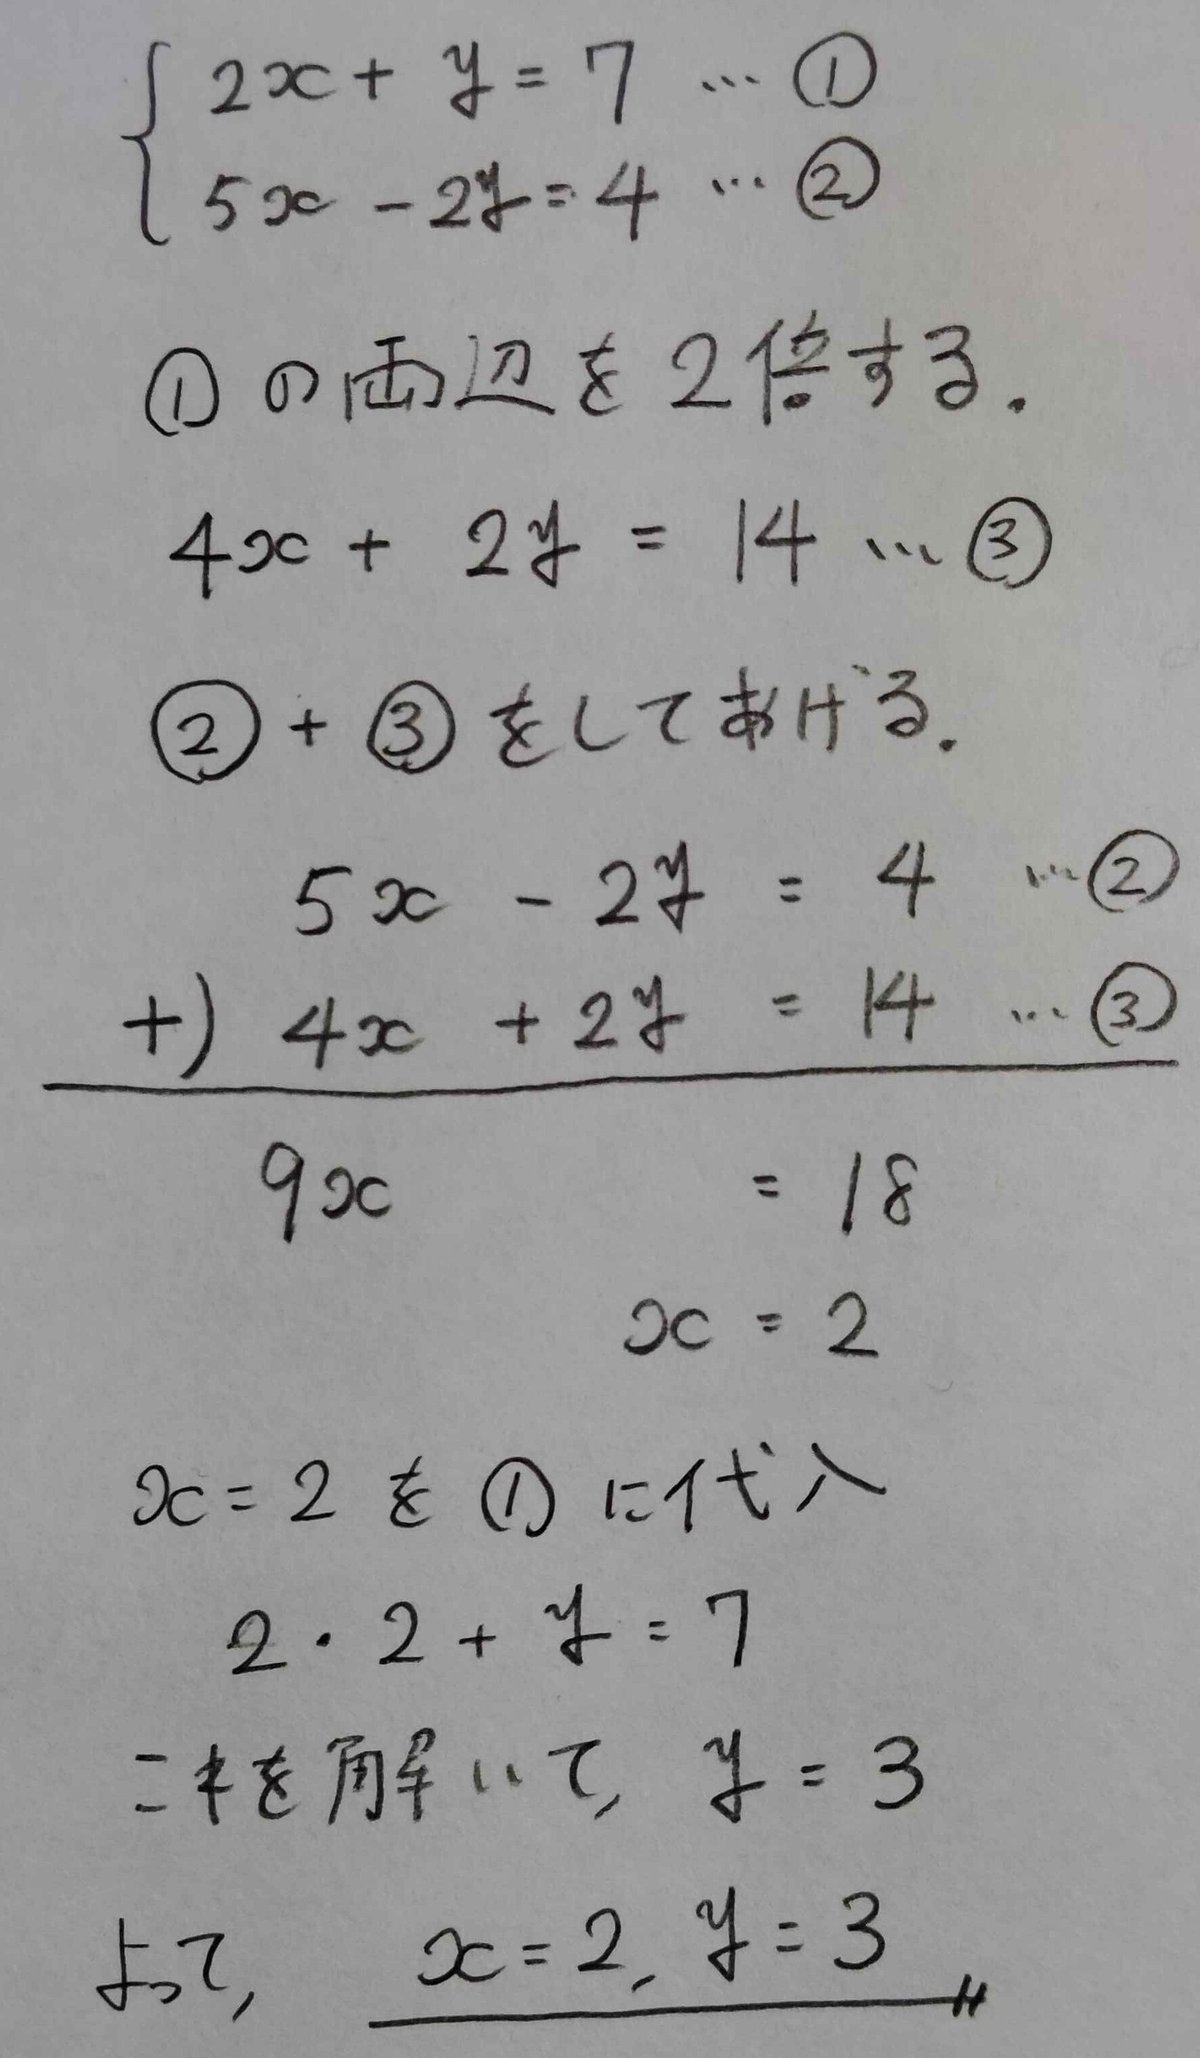 2x + y = 7 … ①
5x - 2y = 4 … ②
①の両辺を2倍する.
4x + 2y = 14 … ③
② + ③ をしてあげる.
5x - 2y = 4 … ②
+) 4x + 2y = 14 … ③
9x = 18
x = 2
x = 2 を ① に代入
2・2 + y = 7
これを解いて, y = 3
よって, x = 2, y = 3